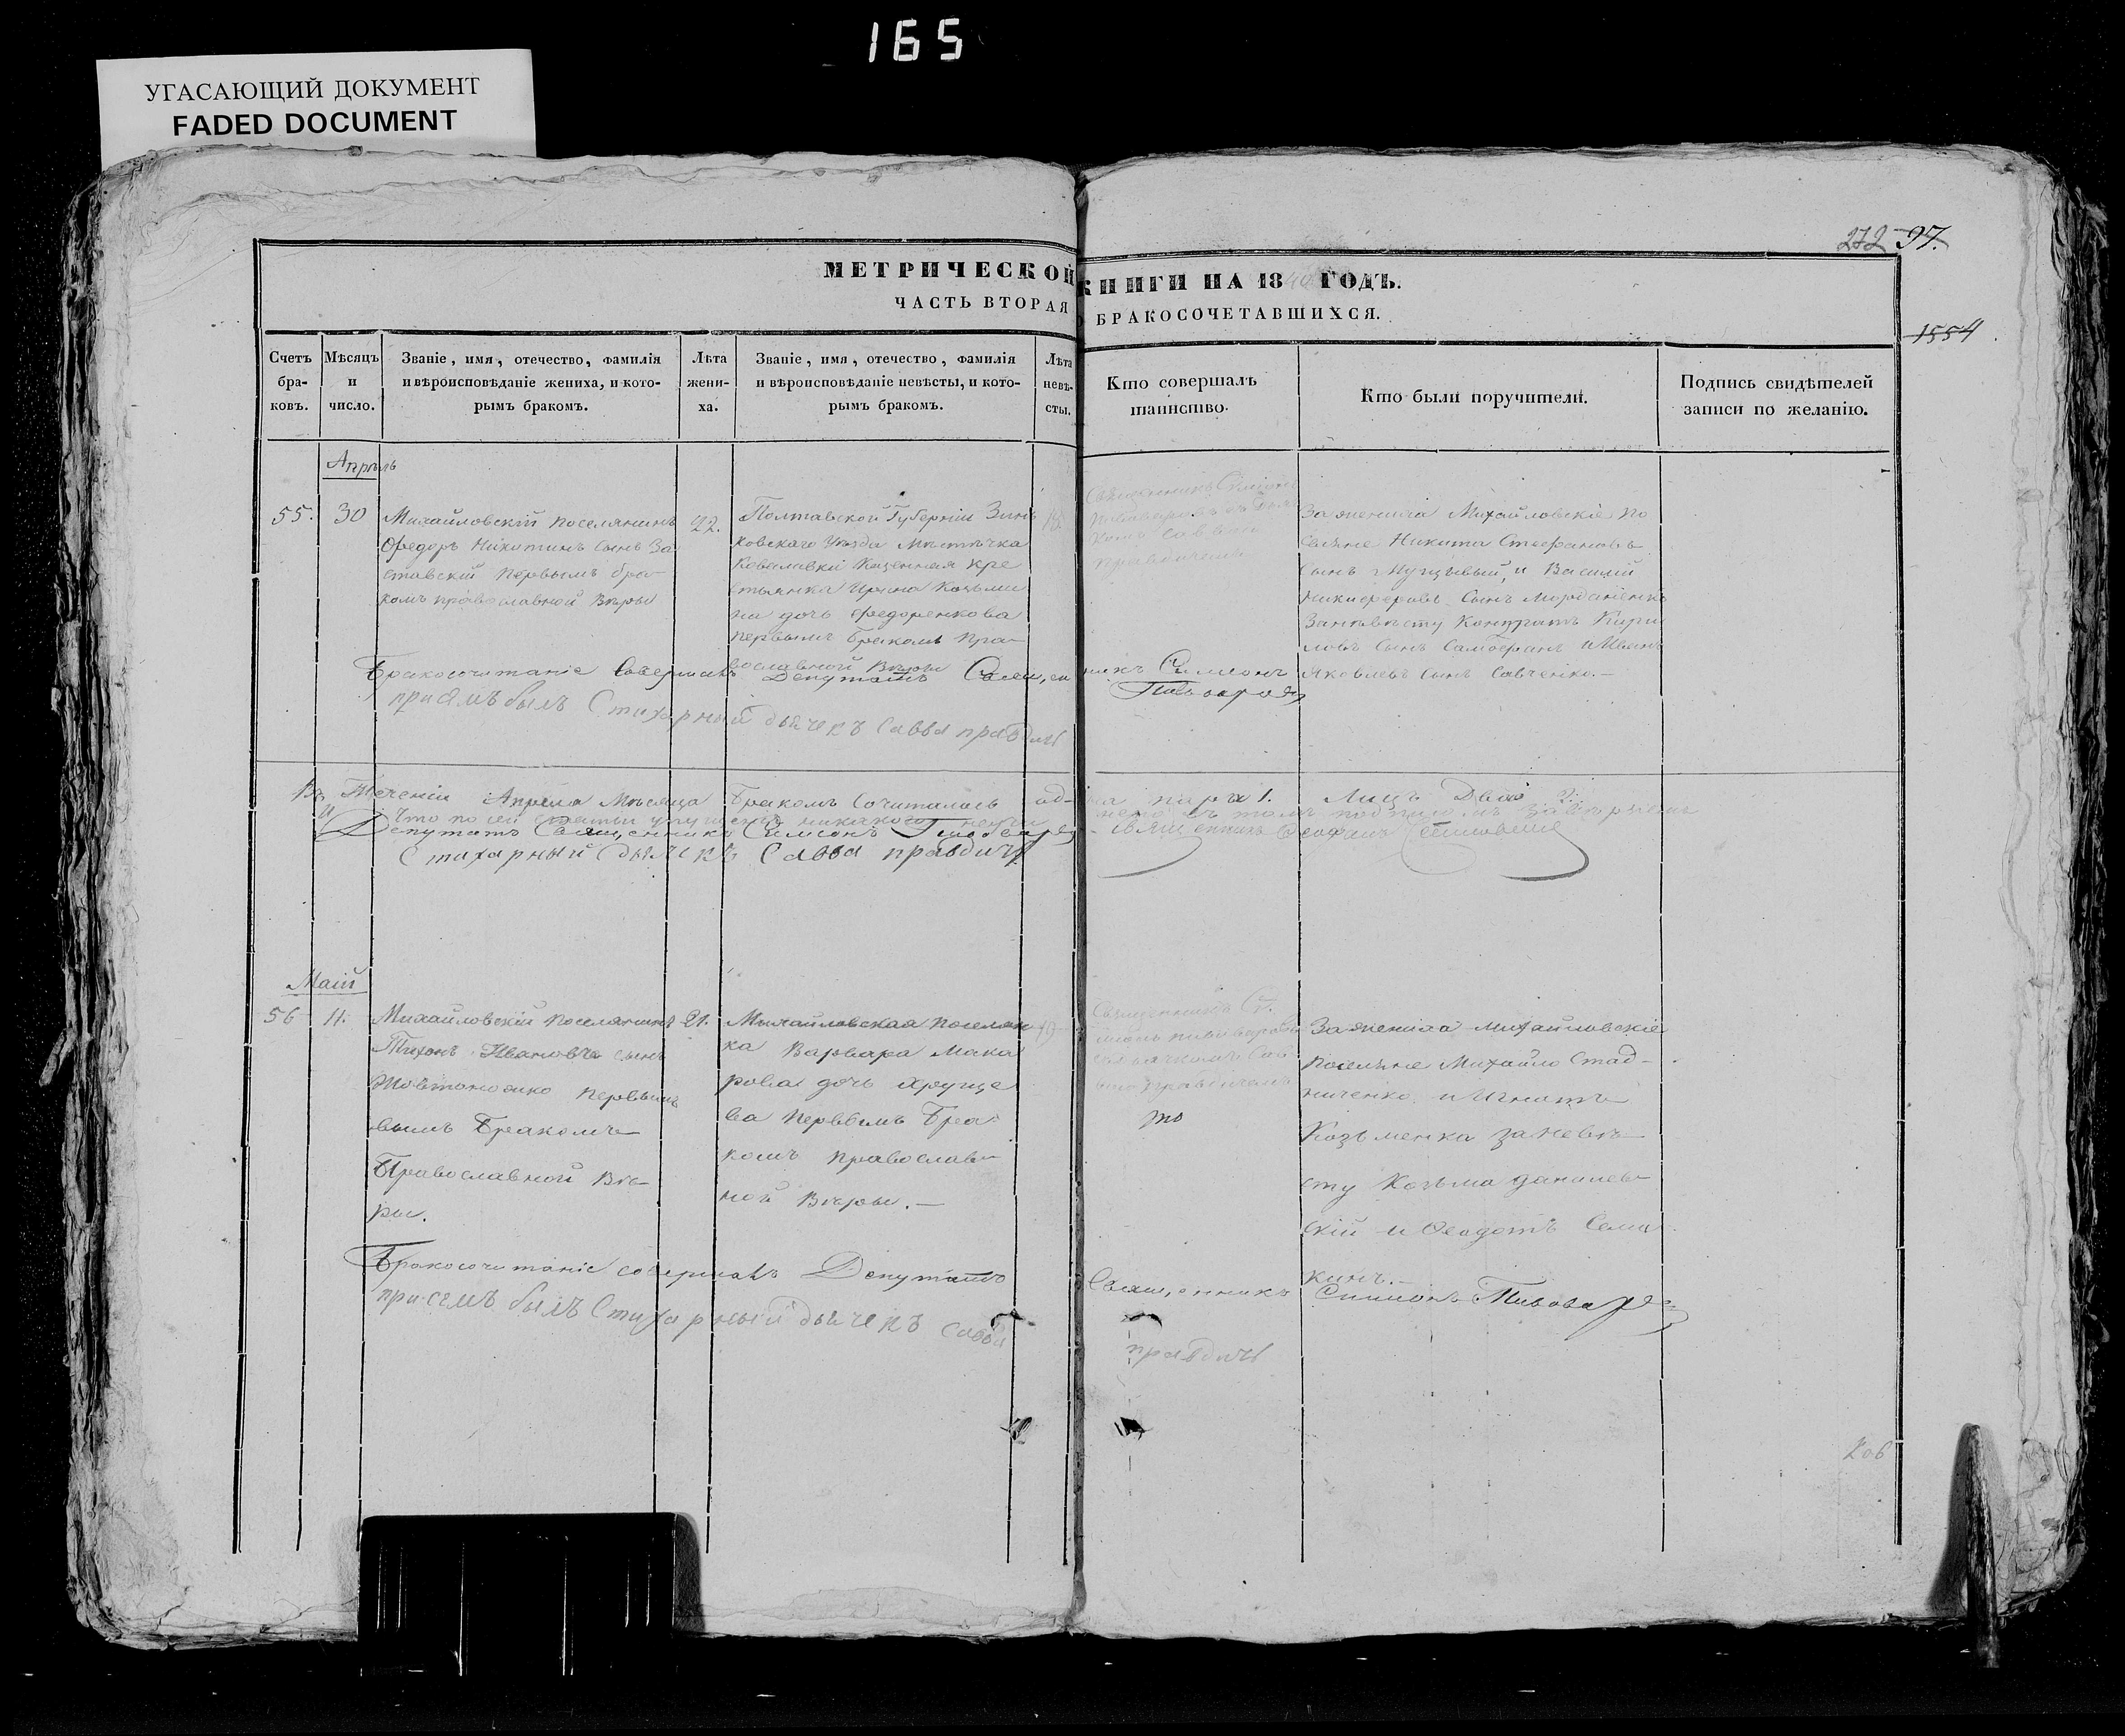 165
УГАСАЮЩИЙ ДОКУМЕНТ
FADED DOCUMENT
272 97.
МЕТРИЧЕСКОЙ КНИГИ НА 18 ГОДЪ.
ЧАСТЬ ВТОРАЯ О БРАКОСОЧЕТАВШИХСЯ.
1554
Счетъ бра-ковъ.
Мѣсяцъ и число.
Званіе, имя, отечество, фамилія
и вѣроисповѣданіе жениха, и кото-
рымъ бракомъ.
Лѣта жени-ха.
Званіе, имя, отечество, фамилія
и вѣроисповѣданіе невѣсты, и кото-
рымъ бракомъ.
Лѣта невѣ-сты.
Кто совершалъ
таинство.
Кто были поручители.
Подпись свидѣтелей
записи по желанію.
Апрѣль
55.
30
Михайловскій поселянинъ
Федоръ Никитинъ сынъ За
ставскій первымъ бра
комъ православной вѣры
22.
Полтавской Губерніи Зинь
ковскаго уѣзда мѣстѣчка
Ковалевки казенная кре
стьянка Ирина Козьми
на дочь Федоренкова
первымъ бракомъ пра-
вославной вѣры
18
Священникъ Симіонъ
Саввою
Правдичемъ
За жениха Михайловскіе по
селяне Никита Стефановъ
сынъ и Василій
Никифоровъ сынъ
За невѣсту Кондратъ Кири
ловъ сынъ и Иванъ
Яковлевъ сынъ Савченко.-
Бракосочитаніе совершалъ Депутатъ Священникъ Симеонъ Пивоваровъ
при семъ былъ Стихарный дьячекъ Савва Правдичъ
Въ теченіи Апреля мѣсяца бракомъ сочиталось одна пара 1. Лицъ Двое 2.
И что по сей статьи упущенъ никакого нѣтъ въ томъ подписомъ
Депутатъ Священникъ Симеонъ Пивоваровъ Священникъ Феофанъ
Стихарный дьячекъ Савва Правдичъ
Маій
56
11.
Михайловскій поселянинъ
Тихонъ Ивановъ сынъ
Жовтоножко первымъ
вымъ бракомъ
Православной вѣ-
ры.
21.
Михайловская поселян
ка Варвара Мака
рова дочь Хруще
ва первымъ бра
комъ православ-
ной вѣры.-
19
Священникъ Си
Правдичемъ
то
За жениха Михайловскіе
поселяне Михайло Стад-
ниченко и Игнатъ
Козьменка за невѣ-
сту Козьма Данилев-
скій и Феодотъ Сема
кинъ.-
Бракосочитаніе совершалъ Депутатъ Священникъ Симеонъ Пивоваровъ
при семъ былъ Стихарный дьячекъ Савва Правдичъ
206